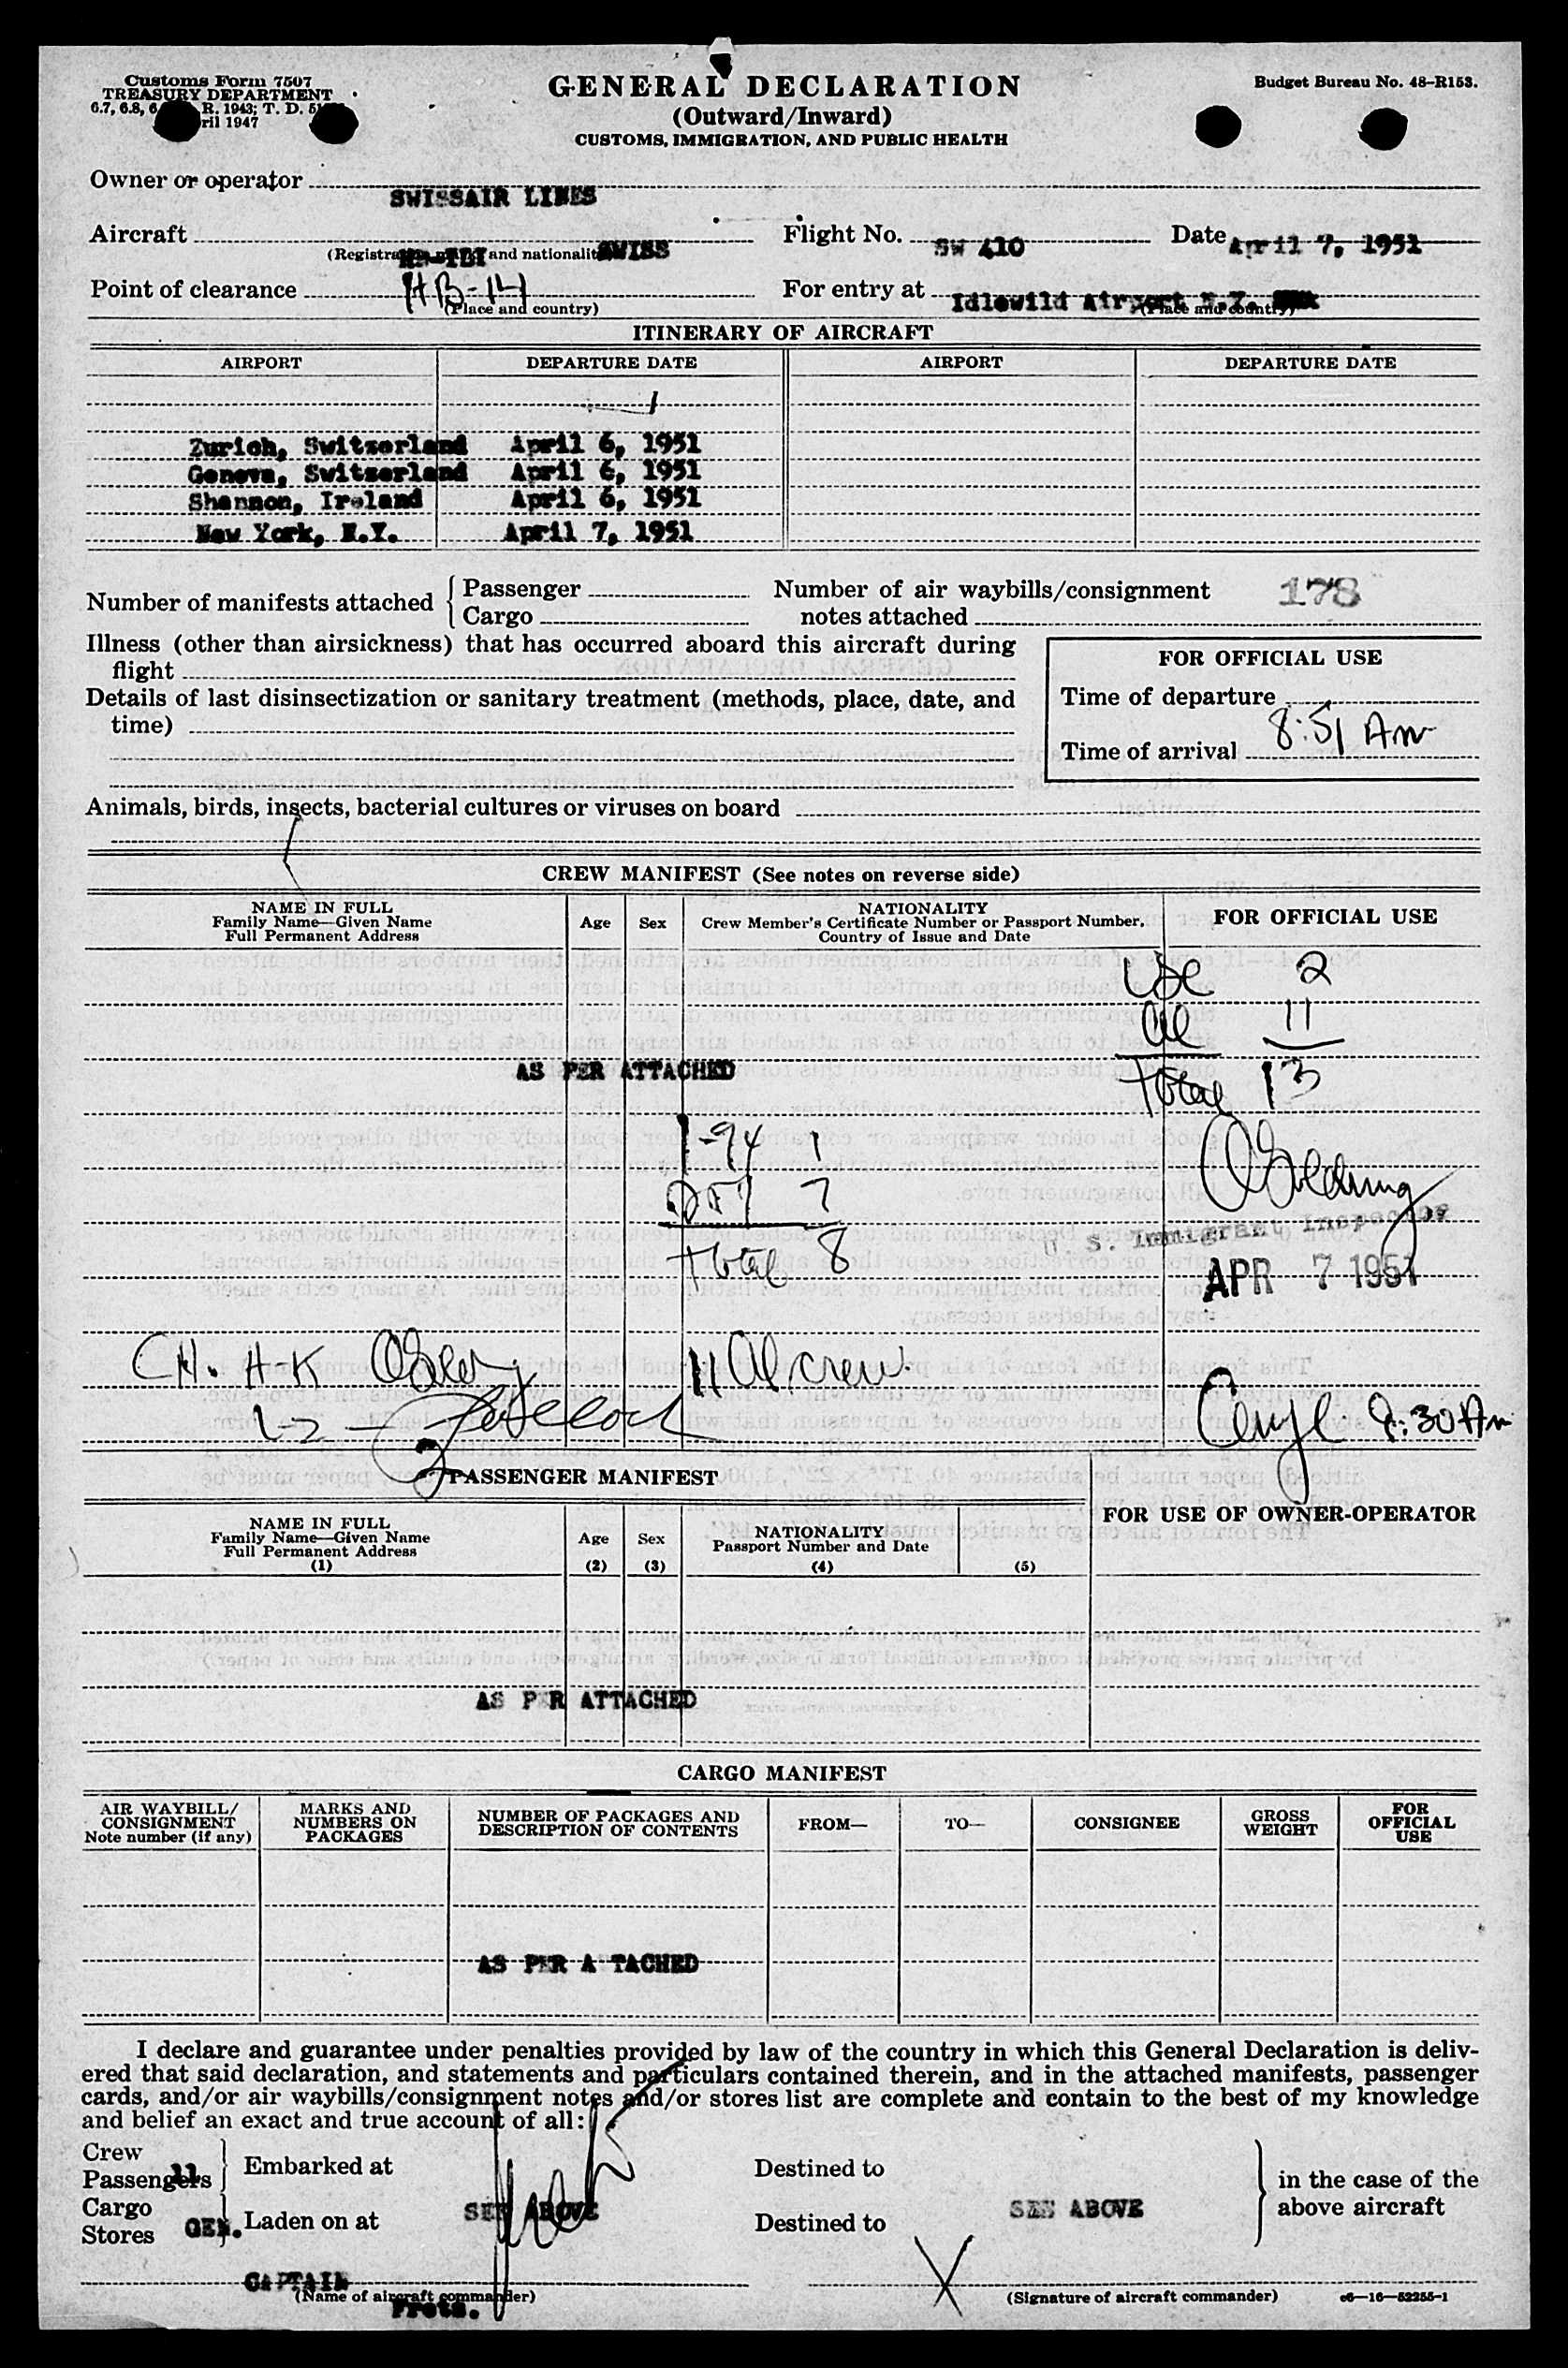 Customs Form 7507
TREASURY DEPARTMENT
6.7, 6.8, R. 1943; T. D.
1947
GENERAL DECLARATION
(Outward/Inward)
CUSTOMS, IMMIGRATION, AND PUBLIC HEALTH
Budget Bureau No. 48-R153.
Owner or operator SWISSAIR LINES
Aircraft SWISS Flight No. SW 410 Date April 7, 1951
Point of clearance (Place and country) For entry at Idlewild Airport N.Y.
ITINERARY OF AIRCRAFT
AIRPORT DEPARTURE DATE AIRPORT DEPARTURE DATE
Zurich, Switzerland April 6, 1951
Geneva, Switzerland April 6, 1951
Shannon, Ireland April 6, 1951
New York, N.Y. April 7, 1951
Number of manifests attached { Passenger
Cargo
Number of air waybills/consignment notes attached 178
Illness (other than airsickness) that has occurred aboard this aircraft during
flight
Details of last disinsectization or sanitary treatment (methods, place, date, and
time)
FOR OFFICIAL USE
Time of departure
Time of arrival 8:51 Am
Animals, birds, insects, bacterial cultures or viruses on board
CREW MANIFEST (See notes on reverse side)
NAME IN FULL
Family Name—Given Name
Full Permanent Address
Age
Sex
NATIONALITY
Crew Member's Certificate Number or Passport Number,
Country of Issue and Date
FOR OFFICIAL USE
USC 2
Al 11
Total 13
AS PER ATTACHED
I-94 1
257 7
Total 8
U. S. Immigrant Inspector
APR 7 1951
11 Al crew
9:30 Am
PASSENGER MANIFEST
FOR USE OF OWNER-OPERATOR
NAME IN FULL
Family Name—Given Name
Full Permanent Address
(1)
Age
(2)
Sex
(3)
NATIONALITY
Passport Number and Date
(4)
(5)
AS P R ATTACHED
CARGO MANIFEST
AIR WAYBILL/
CONSIGNMENT
Note number (if any)
MARKS AND
NUMBERS ON
PACKAGES
NUMBER OF PACKAGES AND
DESCRIPTION OF CONTENTS
FROM—
TO—
CONSIGNEE
GROSS
WEIGHT
FOR
OFFICIAL
USE
AS PER A TACHED
I declare and guarantee under penalties provided by law of the country in which this General Declaration is deliv-
ered that said declaration, and statements and particulars contained therein, and in the attached manifests, passenger
cards, and/or air waybills/consignment notes and/or stores list are complete and contain to the best of my knowledge
and belief an exact and true account of all:
Crew
Passengers 11
Embarked at
Destined to
in the case of the
above aircraft
Cargo
Stores GEN.
Laden on at SEE ABOVE
Destined to SEE ABOVE
CAPTAIN
(Name of aircraft commander)
X
(Signature of aircraft commander)
c6—16—52255-1